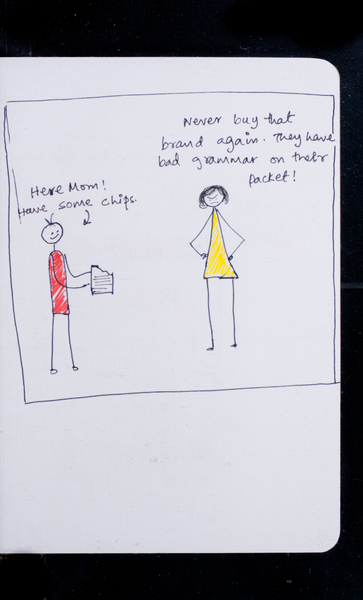 Never buy that
brand again. They have
bad grammar on their
packet!
Here Mom!
Have some chips.